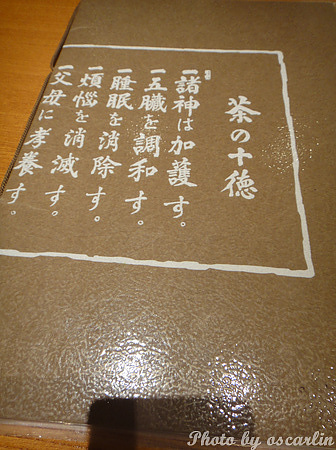 茶の十徳
一諸神は加護す。
一五臓を調和す。
一睡眠を消除す。
一煩悩を消滅す。
一父母に孝養す。
Photo by oscarlin